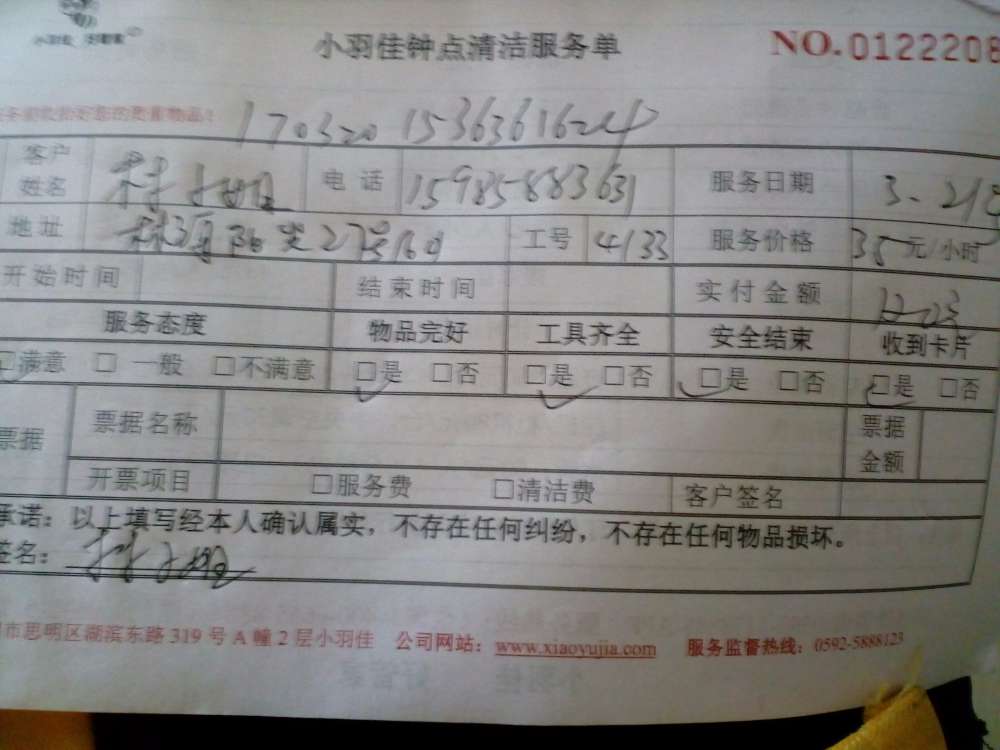 小羽佳 好管家
小羽佳钟点清洁服务单
NO.0122208
170320 1536361624
客户姓名 林小姐 电话 15985883631 服务日期 3.21
地址 阳光27号 工号 4133 服务价格 35元/小时
开始时间 结束时间 实付金额
服务态度 物品完好 工具齐全 安全结束 收到卡片
□满意 □一般 □不满意 □是 □否 □是 □否 □是 □否 □是 □否
票据 票据名称 票据金额
开票项目 □服务费 □清洁费 客户签名
承诺：以上填写经本人确认属实，不存在任何纠纷，不存在任何物品损坏。
签名：林小姐
市思明区湖滨东路 319 号 A 幢 2 层小羽佳 公司网站：www.xiaoyujia.com 服务监督热线：0592-5888123